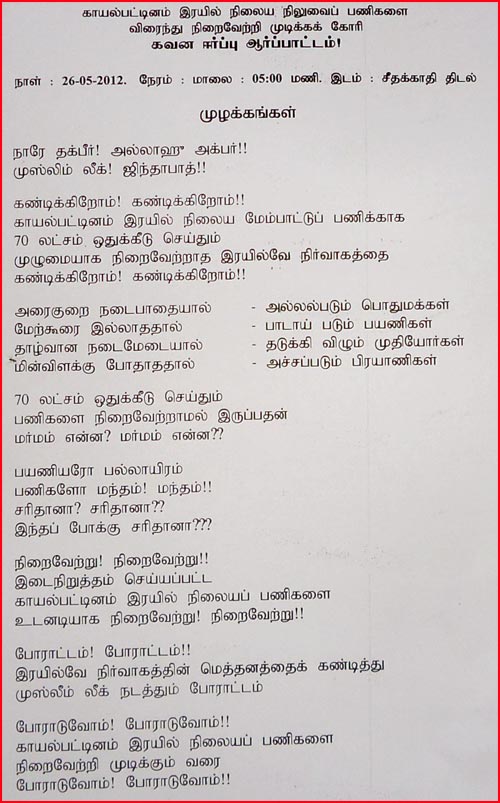 காயல்பட்டினம் இரயில் நிலைய நிலுவைப் பணிகளை
விரைந்து நிறைவேற்றி முடிக்கக் கோரி
கவன ஈர்ப்பு ஆர்ப்பாட்டம்!
நாள் : 26-05-2012. நேரம் : மாலை : 05:00 மணி. இடம் : சீதக்காதி திடல்
முழக்கங்கள்
நாரே தக்பீர்! அல்லாஹு அக்பர்!!
முஸ்லிம் லீக்! ஜிந்தாபாத்!!
கண்டிக்கிறோம்! கண்டிக்கிறோம்!!
காயல்பட்டினம் இரயில் நிலைய மேம்பாட்டுப் பணிக்காக
70 லட்சம் ஒதுக்கீடு செய்தும்
முழுமையாக நிறைவேற்றாத இரயில்வே நிர்வாகத்தை
கண்டிக்கிறோம்! கண்டிக்கிறோம்!!
அரைகுறை நடைபாதையால் - அல்லல்படும் பொதுமக்கள்
மேற்கூரை இல்லாததால் - பாடாய் படும் பயணிகள்
தாழ்வான நடைமேடையால் - தடுக்கி விழும் முதியோர்கள்
மின்விளக்கு போதாததால் - அச்சப்படும் பிரயாணிகள்
70 லட்சம் ஒதுக்கீடு செய்தும்
பணிகளை நிறைவேற்றாமல் இருப்பதன்
மர்மம் என்ன? மர்மம் என்ன??
பயணியரோ பல்லாயிரம்
பணிகளோ மந்தம்! மந்தம்!!
சரிதானா? சரிதானா??
இந்தப் போக்கு சரிதானா???
நிறைவேற்று! நிறைவேற்று!!
இடைநிறுத்தம் செய்யப்பட்ட
காயல்பட்டினம் இரயில் நிலையப் பணிகளை
உடனடியாக நிறைவேற்று! நிறைவேற்று!!
போராட்டம்! போராட்டம்!!
இரயில்வே நிர்வாகத்தின் மெத்தனத்தைக் கண்டித்து
முஸ்லீம் லீக் நடத்தும் போராட்டம்
போராடுவோம்! போராடுவோம்!!
காயல்பட்டினம் இரயில் நிலையப் பணிகளை
நிறைவேற்றி முடிக்கும் வரை
போராடுவோம்! போராடுவோம்!!